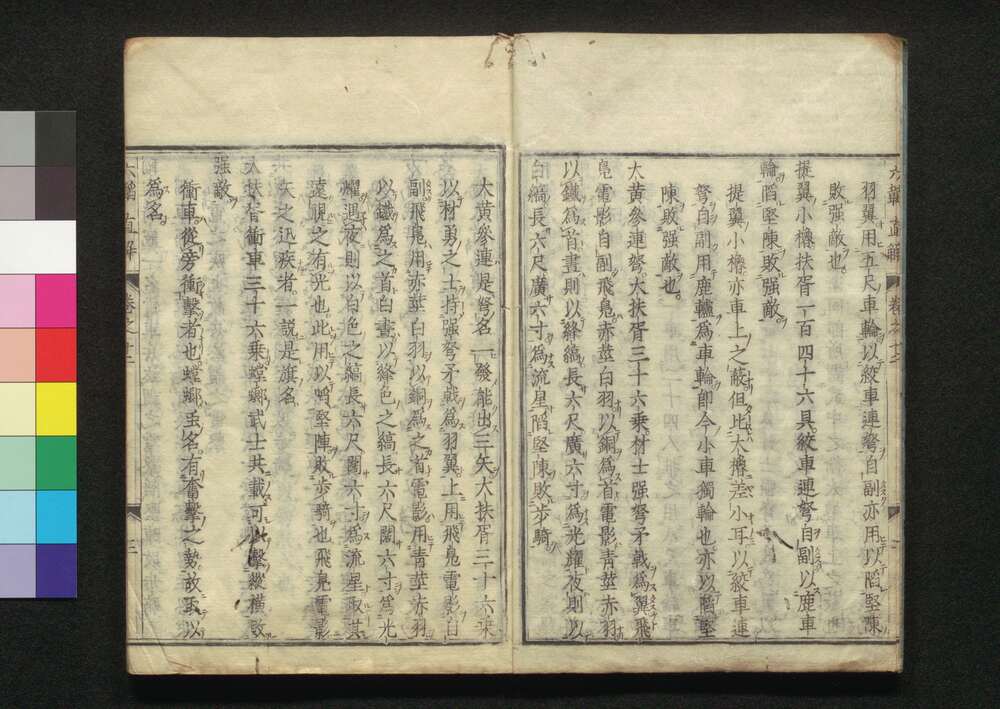 羽翼用五尺車輪以絞車連弩自副亦用以陷堅陳
敗强敵也
提翼小櫓扶胥一百四十六具絞車連弩自副以鹿車
輪陷堅陳敗强敵
提翼小櫓亦車上之蔽但此大櫓差小耳以絞車連
弩自副用鹿轤爲車輪即今小車獨輪也亦以陷堅
陳敗强敵也
大黄參連弩大扶胥三十六乘材士强弩矛戟爲翼飛
鳬電影自副飛鳬赤莖白羽以銅爲首電影靑莖赤羽
以鐵爲首晝則以絳縞長六尺廣六寸爲光耀夜則以
白縞長六尺廣六寸爲流星陷堅陳敗步騎
大黄參連是弩名一發能出三矢大扶胥三十六乘
以材勇之士持强弩矛戟爲羽翼上用飛鳬電影自
副飛鳬用赤莖白羽以銅爲之首電影用靑莖赤羽
以鐵爲之首白晝以絳色之縞長六尺闊六寸爲光
耀遇夜則以白色之縞長六尺闊六寸爲流星取其
遠視之有光也此用以陷堅陣敗步騎也飛鳬電影
矢之迅疾者一說是旗名
大扶胥衝車三十六乘螳螂武士共載可以擊縱橫敗
强敵
衝車從旁衝擊者也螳螂虫名有奮擊之勢故取以
爲名
六韜直解 卷之